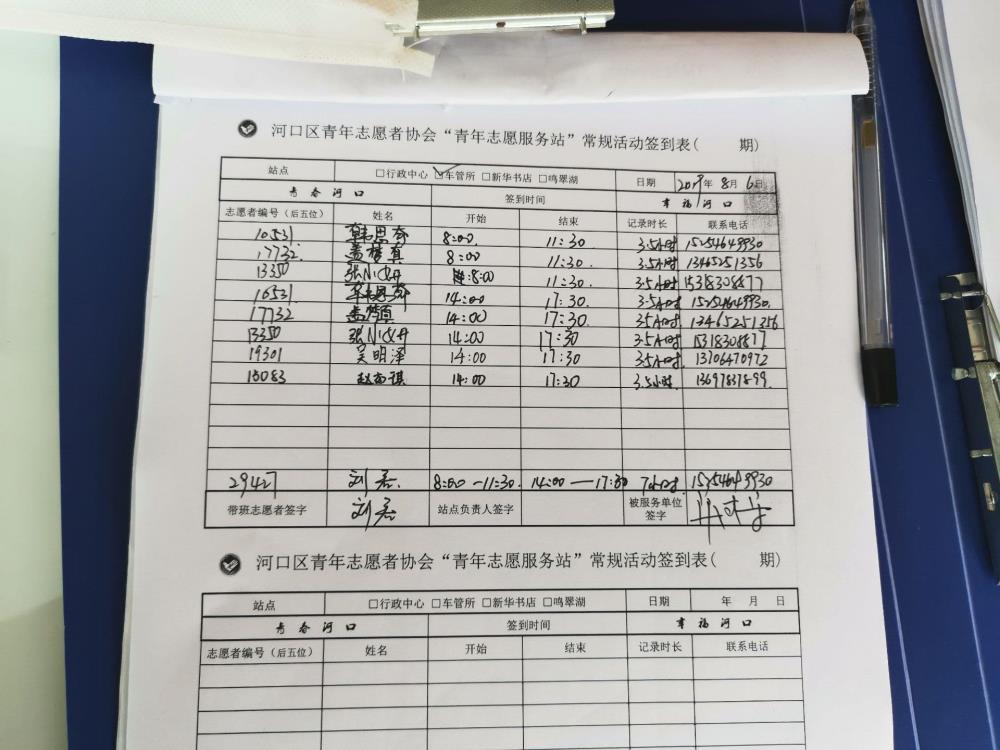 河口区青年志愿者协会“青年志愿服务站”常规活动签到表( 期)
站点 □行政中心 ☑车管所 □新华书店 □鸣翠湖 日期 2019年 8月 6日
青春河口 签到时间 幸福河口
志愿者编号（后五位） 姓名 开始 结束 记录时长 联系电话
10531 韩思奇 8:00 11:30 3.5小时 15254649930
17732 孟梦真 8:00 11:30 3.5小时 13465251356
13350 8:00 11:30 3.5小时 1538308877
10531 韩思奇 14:00 17:30 3.5小时 15254649930
17732 14:00 17:30 3.5小时 13465251356
13350 14:00 17:30 3.5小时
19301 吴明泽 14:00 17:30 3.5小时 13706470972
15083 14:00 17:30 3.5小时 13697837899
29427 刘磊 8:00—11:30 14:00—17:30 7小时 15254649930
带班志愿者签字 刘磊 站点负责人签字 被服务单位签字
河口区青年志愿者协会“青年志愿服务站”常规活动签到表( 期)
站点 □行政中心 □车管所 □新华书店 □鸣翠湖 日期 年 月 日
青春河口 签到时间 幸福河口
志愿者编号（后五位） 姓名 开始 结束 记录时长 联系电话